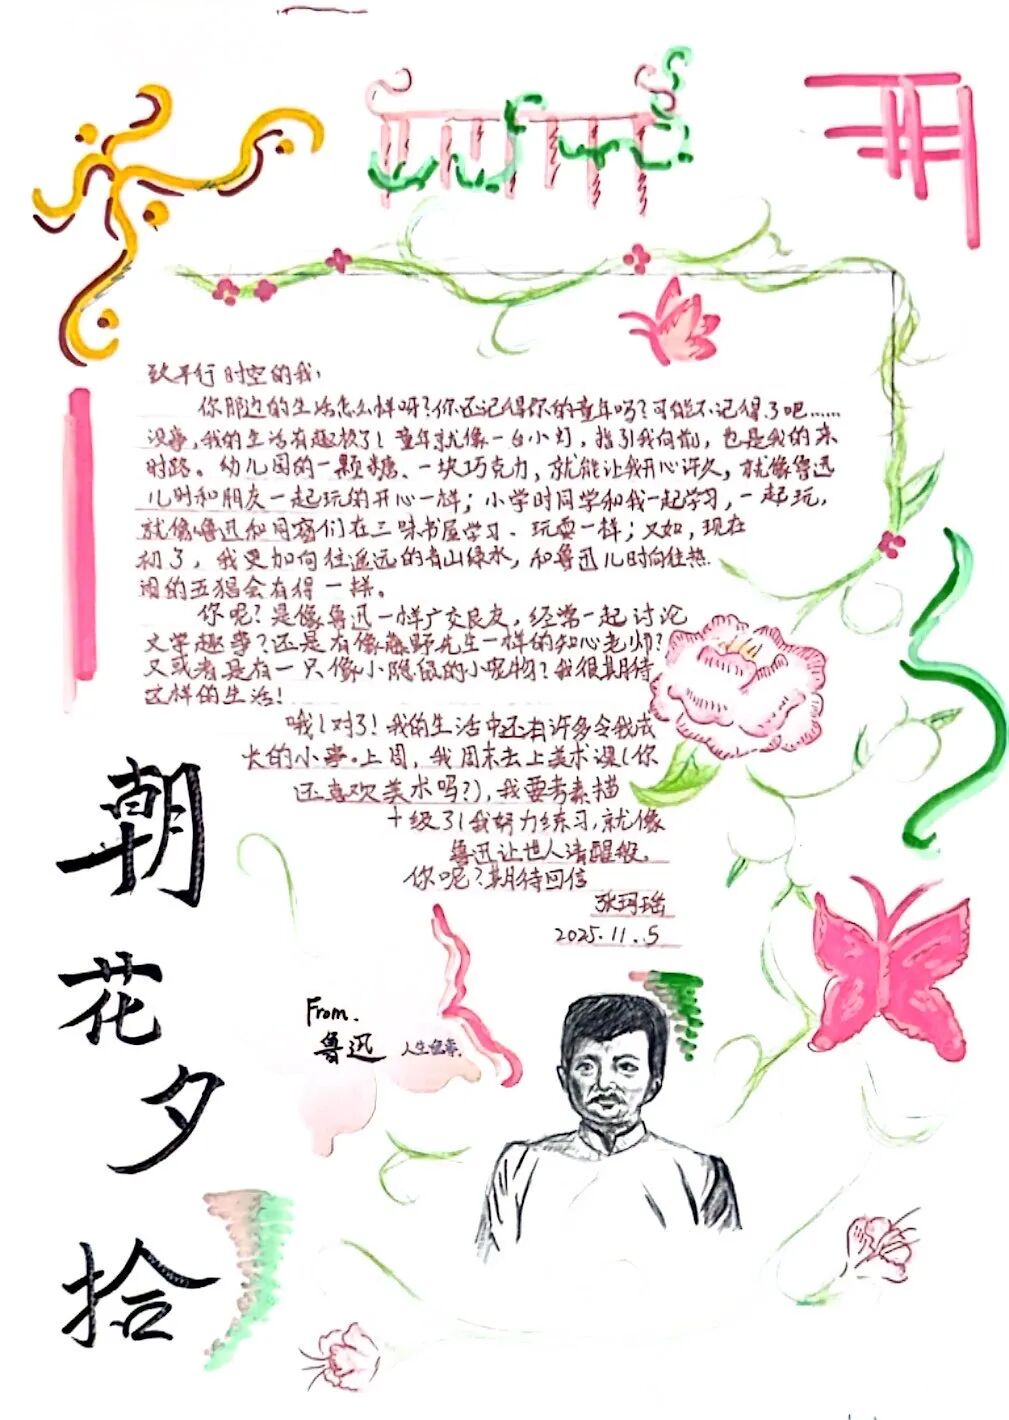 致平行时空的我：
你那边的生活怎么样呀？你还记得你的童年吗？可能不记得了吧……
没事，我的生活有趣极了！童年就像一台小灯，指引我向前，也是我的来
时路。幼儿园的一颗糖、一块巧克力，就能让我开心许久，就像鲁迅
儿时和朋友一起玩的开心一样；小学时同学和我一起学习，一起玩，
就像鲁迅和同窗们在三味书屋学习、玩耍一样；又如，现在
初了，我更加向往遥远的青山绿水，和鲁迅儿时向往热
闹的五猖会有得一拼。
你呢？是像鲁迅一样广交良友，经常一起讨论
文学趣事？还是有像藤野先生一样的知心老师？
又或者是有一只像小隐鼠的小宠物？我很期待
这样的生活！
哦！对了！我的生活中还有许多令我成
长的小事。上周，我周末去上美术课（你
还喜欢美术吗？），我要考素描
十级了！我努力练习，就像
鲁迅让世人清醒般。
你呢？期待回信
张珂瑶
2025.11.5
朝
花
夕
拾
From.
鲁迅